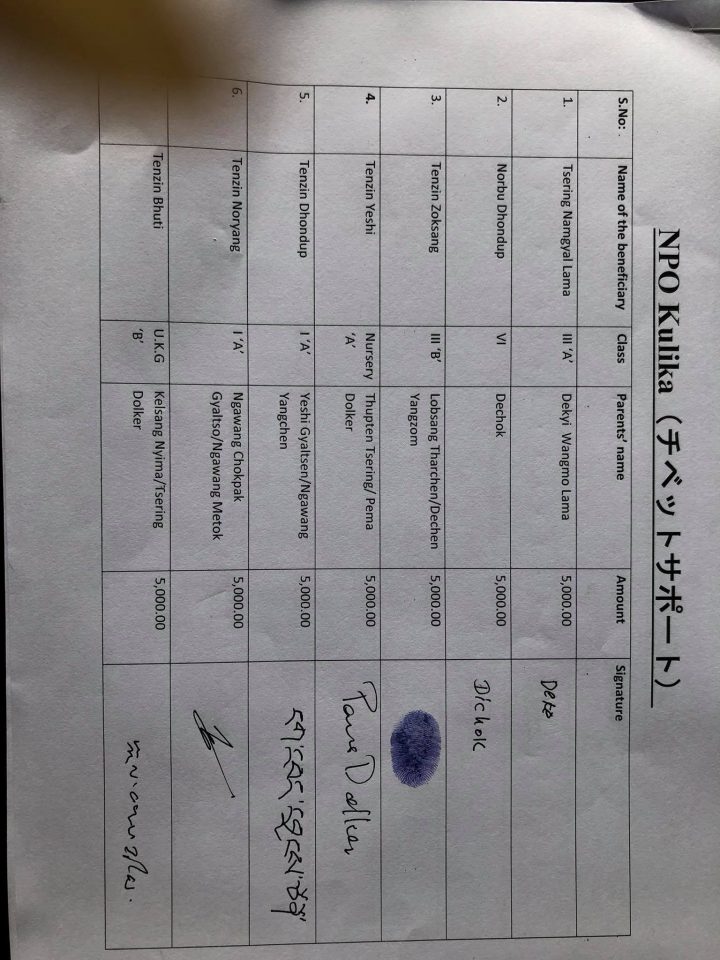 NPO Kulika（チベットサポート）
S.No: Name of the beneficiary Class Parents' name Amount Signature
1. Tsering Namgyal Lama III 'A' Dekyi Wangmo Lama 5,000.00
2. Norbu Dhondup VI Dechok 5,000.00 Dichok
3. Tenzin Zoksang III 'B' Lobsang Tharchen/Dechen
Yangzom 5,000.00
4. Tenzin Yeshi Nursery
'A' Thupten Tsering/ Pema
Dolker 5,000.00
5. Tenzin Dhondup I 'A' Yeshi Gyaltsen/Ngawang
Yangchen 5,000.00
6. Tenzin Noryang I 'A' Ngawang Chokpak
Gyaltso/Ngawang Metok 5,000.00
Tenzin Bhuti U.K.G
'B' Kelsang Nyima/Tsering
Dolker 5,000.00